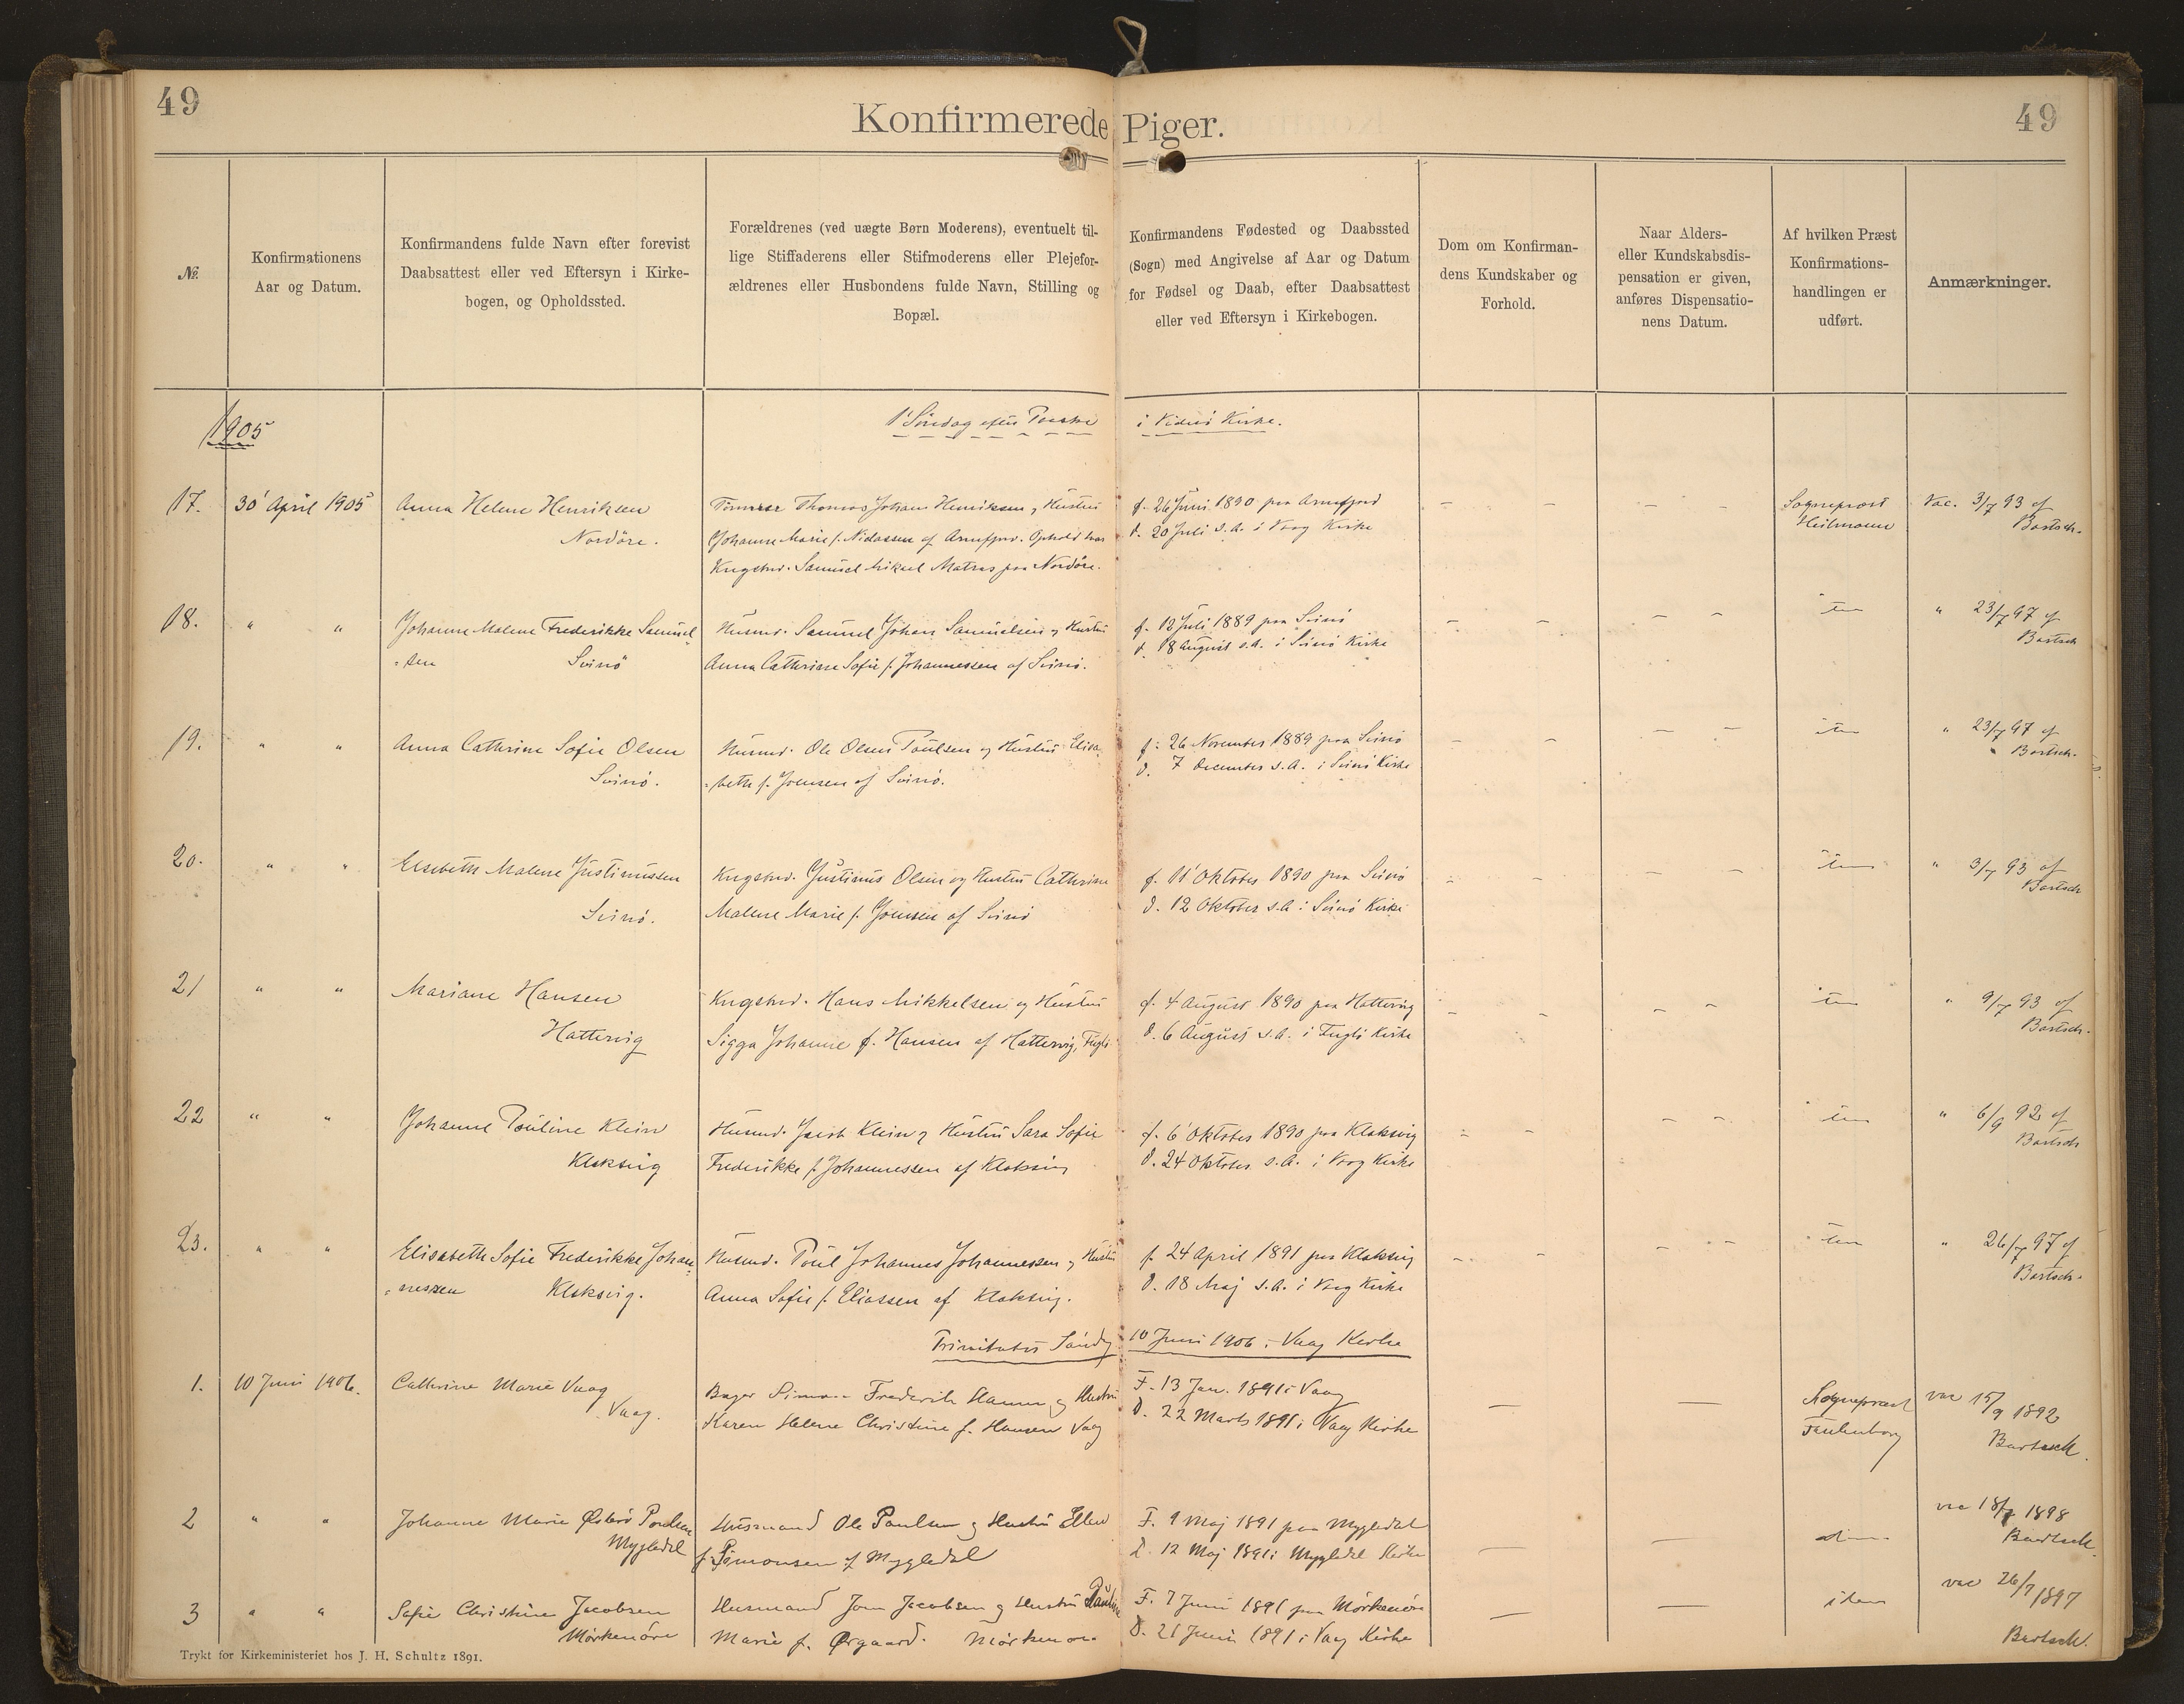 49
Konfirmerede Piger.
49
№.
Konfirmationens
Aar og Datum.
Konfirmandens fulde Navn efter forevist
Daabsattest eller ved Eftersyn i Kirke-
bogen, og Opholdssted.
Forældrenes (ved uægte Børn Moderens), eventuelt til-
lige Stiffaderens eller Stifmoderens eller Plejefor-
ældrenes eller Husbondens fulde Navn, Stilling og
Bopæl.
Konfirmandens Fødested og Daabssted
(Sogn) med Angivelse af Aar og Datum
for Fødsel og Daab, efter Daabsattest
eller ved Eftersyn i Kirkebogen.
Dom om Konfirman-
dens Kundskaber og
Forhold.
Naar Alders-
eller Kundskabsdis-
pensation er given,
anføres Dispensatio-
nens Datum.
Af hvilken Præst
Konfirmations-
handlingen er
udført.
Anmærkninger.
1905
1' Søndag efter Paaske i Viderö Kirke.
17.
30' April 1905
Anna Helene Henriksen
Nordöre.
Tömrer Thomas Johan Henriksen og Hustru
Johanne Marie f. Niclassen af Arnefjord. Ophold hos
Kngsbd. Samuel Mikael Matras paa Nordöre.
f. 26 Juni 1890 paa Arnefjord
d. 20 Juli s.A. i Vaag Kirke
- - - -
Sognepræst
Heilmann
Vac. 3/7 93 af
Bartsch.
18.
" "
Johanne Malene Frederikke Samuel
=sen Svinö
Husmd. Samuel Johan Samuelsen og Hustru
Anna Cathrine Sofie f. Johannessen af Svinö.
f. 12 Juli 1889 paa Svinö
d. 18 August s.A. i Svinö Kirke
- - - -
" 23/7 97 af
Bartsch
19.
" "
Anna Cathrine Sofie Olsen
Svinö.
Husmd. Ole Olsen Poulsen og Hustru Elisa-
=beth f. Joensen af Svinö.
f. 26 November 1889 paa Svinö
d. 7 December s.A. i Svinö Kirke
- - - -
" 23/7 97 af
Bartsch.
20.
" "
Elsebeth Malene Justinussen
Svinö.
Kngsbd. Justinus Olsen og Hustru Cathrine
Malene Marie f. Joensen af Svinö
f. 11' Oktober 1890 paa Svinö
d. 12 Oktober s.A i Svinö Kirke
- - - -
" 3/7 93 af
Bartsch
21
" "
Mariane Hansen
Hattervig
Kngsbd. Hans Mikkelsen og Hustru
Sigga Johanne f. Hansen af Hattervig, Fuglö
f. 4 August 1890 paa Hattervig
d. 6 August s.A. i Fuglö Kirke
- - - -
" 9/7 93 af
Bartsch.
22
" "
Johanne Pouline Klein
Klaksvig
Husmd. Jacob Klein og Hustru Sara Sofie
Frederikke f. Johannessen af Klaksvig
f. 6' Oktober 1890 paa Klaksvig
d. 24 Oktober s.A. i Vaag Kirke
- - - -
" 6/9 92 af
Bartsch
23.
" "
Elisabeth Sofie Frederikke Johan=
=nessen Klaksvig.
Husmd. Poul Johannes Johannessen og Hustru
Anna Sofie f. Eliassen af Klaksvig.
f. 24 April 1891 paa Klaksvig
d. 18 Maj s.A. i Vaag Kirke
- - - -
" 26/7 97 af
Bartsch.
Trinitatis Søndg 10 Juni 1906 i Vaag Kirke
1.
10 Juni 1906.
Cathrine Marie Vaag
Vaag.
Bager Simon Frederik Hansen og Hustru
Karen Helene Christine f. Hansen Vaag
F. 13 Jan. 1891 i Vaag
D. 22 Marts 1891 i Vaag Kirke
— —
Sognepræst
vac 15/9 1892
Bartsch.
2
" "
Johanne Marie Østerö Poulsen
Mygledal
Husmand Ole Poulsen og Hustru Ellen
f. Simonsen af Mygledal
F. 9 Maj 1891 paa Mygledal
D. 12 Maj 1891 i Mygledal Kirke
— —
vac 18/7 1898
Bartsch.
3
" "
Sofie Christine Jacobsen
Mörkenöre
Husmand Joen Jacobsen og Hustru Pauline
Marie f. Ørgaard. Mörkenöre
F. 7 Juni 1891 paa Mörkenöre
D. 21 Juni 1891 i Vaag Kirke
— —
idem
vac 26/7 1897
Bartsch.
Trykt for Kirkeministeriet hos J. H. Schultz 1891.